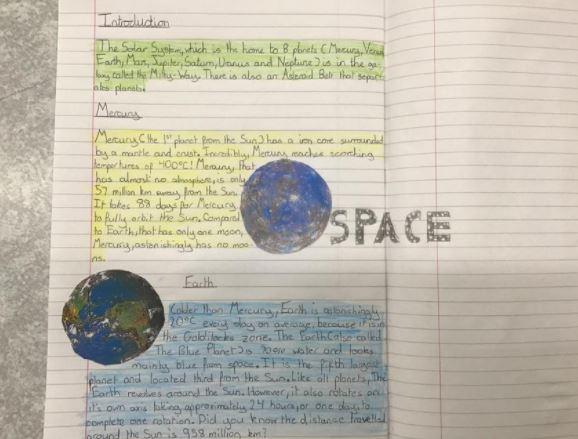 Introduction
The Solar System, which is the home to 8 planets (Mercury, Venus
Earth, Mars, Jupiter, Saturn, Uranus and Neptune) is in the ga-
laxy called the Milky-Way. There is also an Asteroid Belt that separ-
ates planets.
Mercury
Mercury (the 1st planet from the Sun) has a iron core surrounded
by a mantle and crust. Incredibly, Mercury reaches scorching
tempertures of 400°C! Mercury, that
has almost no atmosphere, is only
57 million km away from the Sun.
It takes 88 days for Mercury
to fully orbit the Sun. Compared
to Earth, that has only one moon,
Mercury, astonishingly has no moo-
ns.
SPACE
Earth
Colder than Mercury, Earth is astonishingly
20°C every day on average, because it is in
the Goldilocks zone. The Earth (also called
The Blue Planet) is 70% water and looks
mainly blue from space. It is the fifth largest
planet and located third from the Sun. Like all planets, The
Earth revolves around the Sun. However, it also rotates on
it's own axis taking approximately 24 hours, or one day, to
complete one rotation. Did you know the distance travelled
around the Sun is 958 million km?